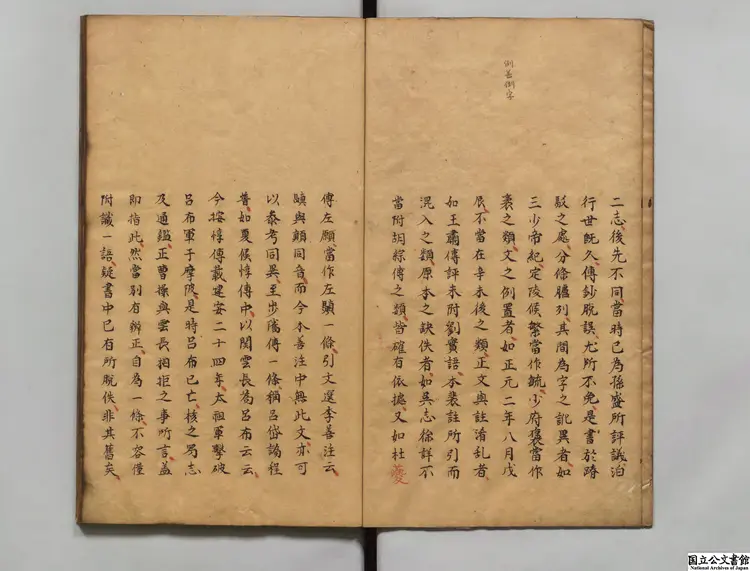 二志後先不同當時已為孫盛所評議洎
行世既久傳鈔脫誤尤所不免是書於踳
駁之處分條臚列其間為字之訛異者如
三少帝紀定陵候繁當作毓少府褒當作
袤之類文之倒置者如正元二年八月戊
辰不當在辛未後之類正文與註淆乱者
如王肅傳評末附劉寔語本裴註所引而
混入之類原本之缺佚者如吳志徐詳不
當附胡綜傳之類皆確有依據又如杜夔
倒甚衡字
傳左願當作左騏一條引文選李善注云
騏與顛同音而今本善注中無此文亦可
以叅考同異至步隲傳一條稱呂岱譌程
普如夏候惇傳中以関雲長為呂布云云
今按惇傳載建安二十四年太祖軍擊破
呂布軍于摩陂是時呂布已亡核之蜀志
及通鑑正曹操與雲長相拒之事所言蓋
即指此然當別有辨正自為一條不容僅
附識一語疑書中已有所脫佚非其舊矣
国立公文書館
National Archives of Japan